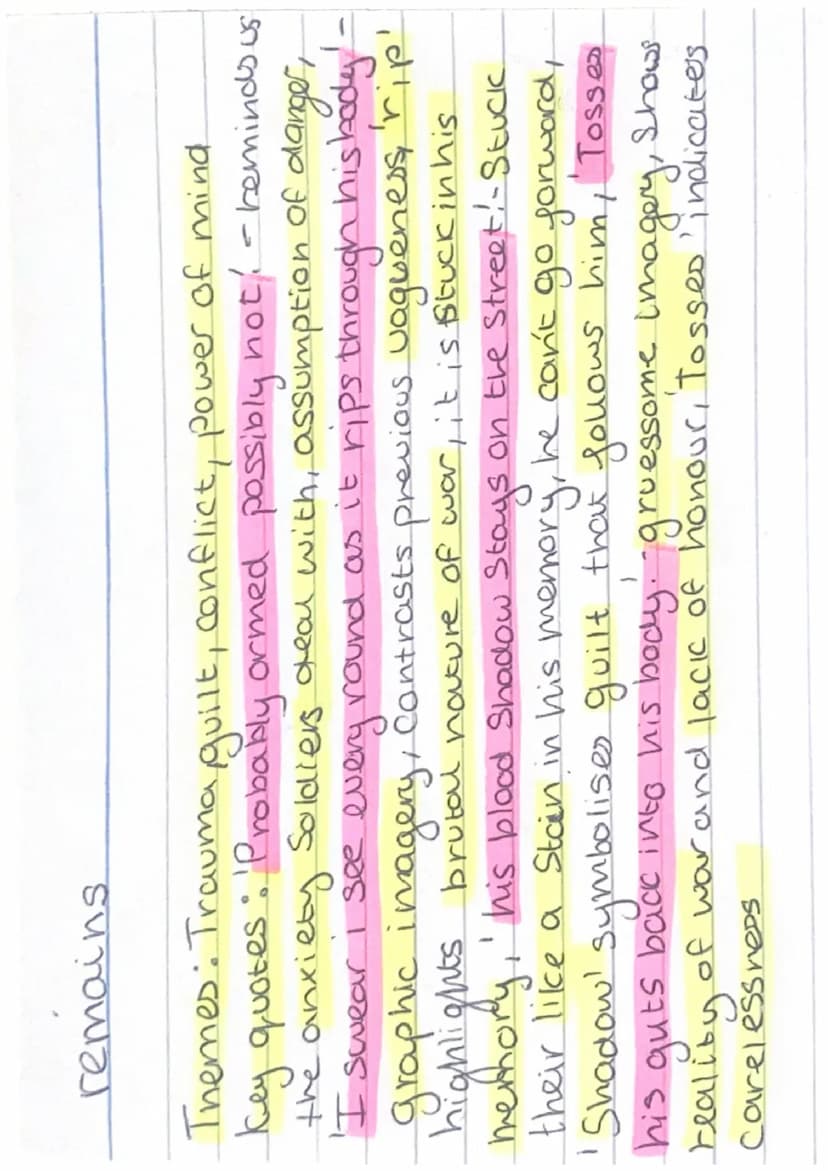 remains
Themes: Trauma, guilt, conflict, power of mind
key quotes: 'Probably armed possibly not' - reminds us
the anxiety Soldiers deal with, assumption of danger,
'I swear I see every round as it rips through his body' -
graphic imagery, contrasts previous vagueness, 'rip'
highlights brutal nature of war, it is stuck in his
memory, 'his blood Shadow Stays on the street' - Stuck
their like a Stain in his memory, he can't go forward,
'Shadow' symbolises guilt that follows him, 'Tosses
his guts back into his body.' gruessome imagery, shows
reality of war and lack of honour, 'Tosses' indicates
carelessness